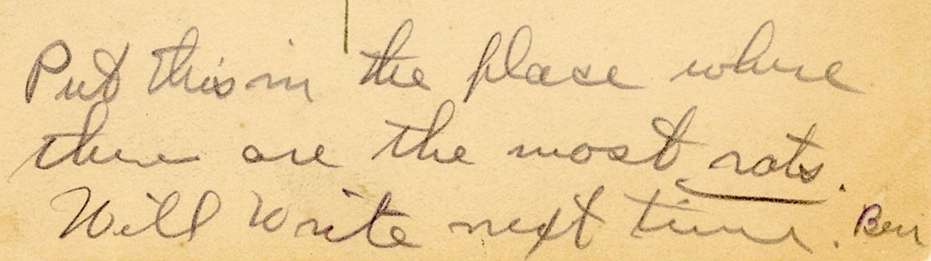 Put this in the place where
there are the most rats.
Will write next time. Ben